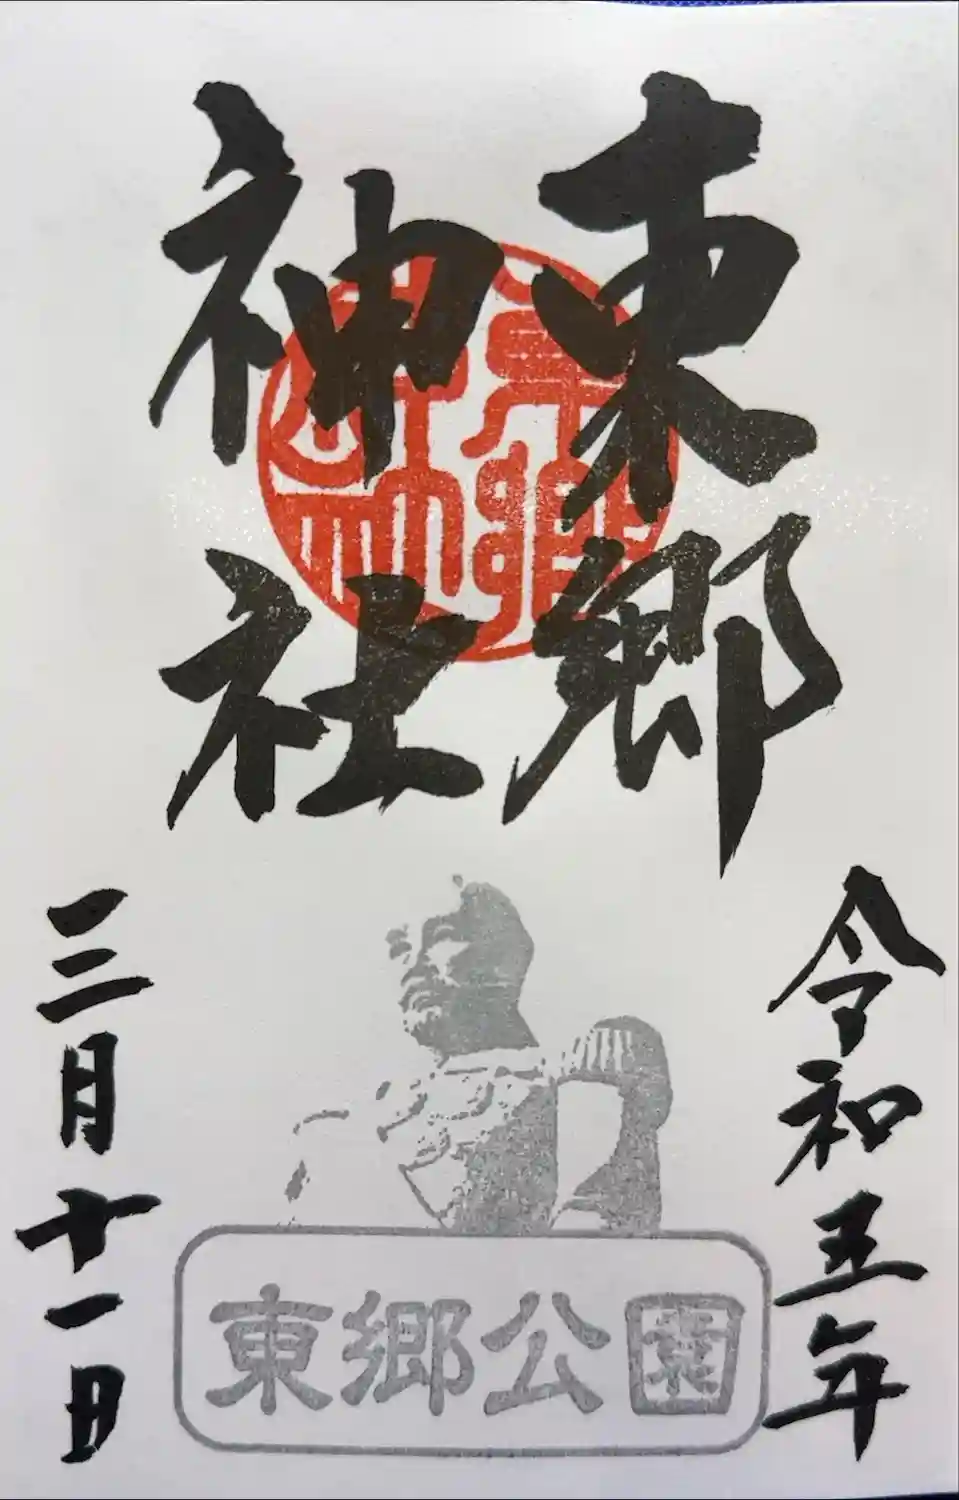 東郷
神社
令和五年
三月十一日
東郷公園